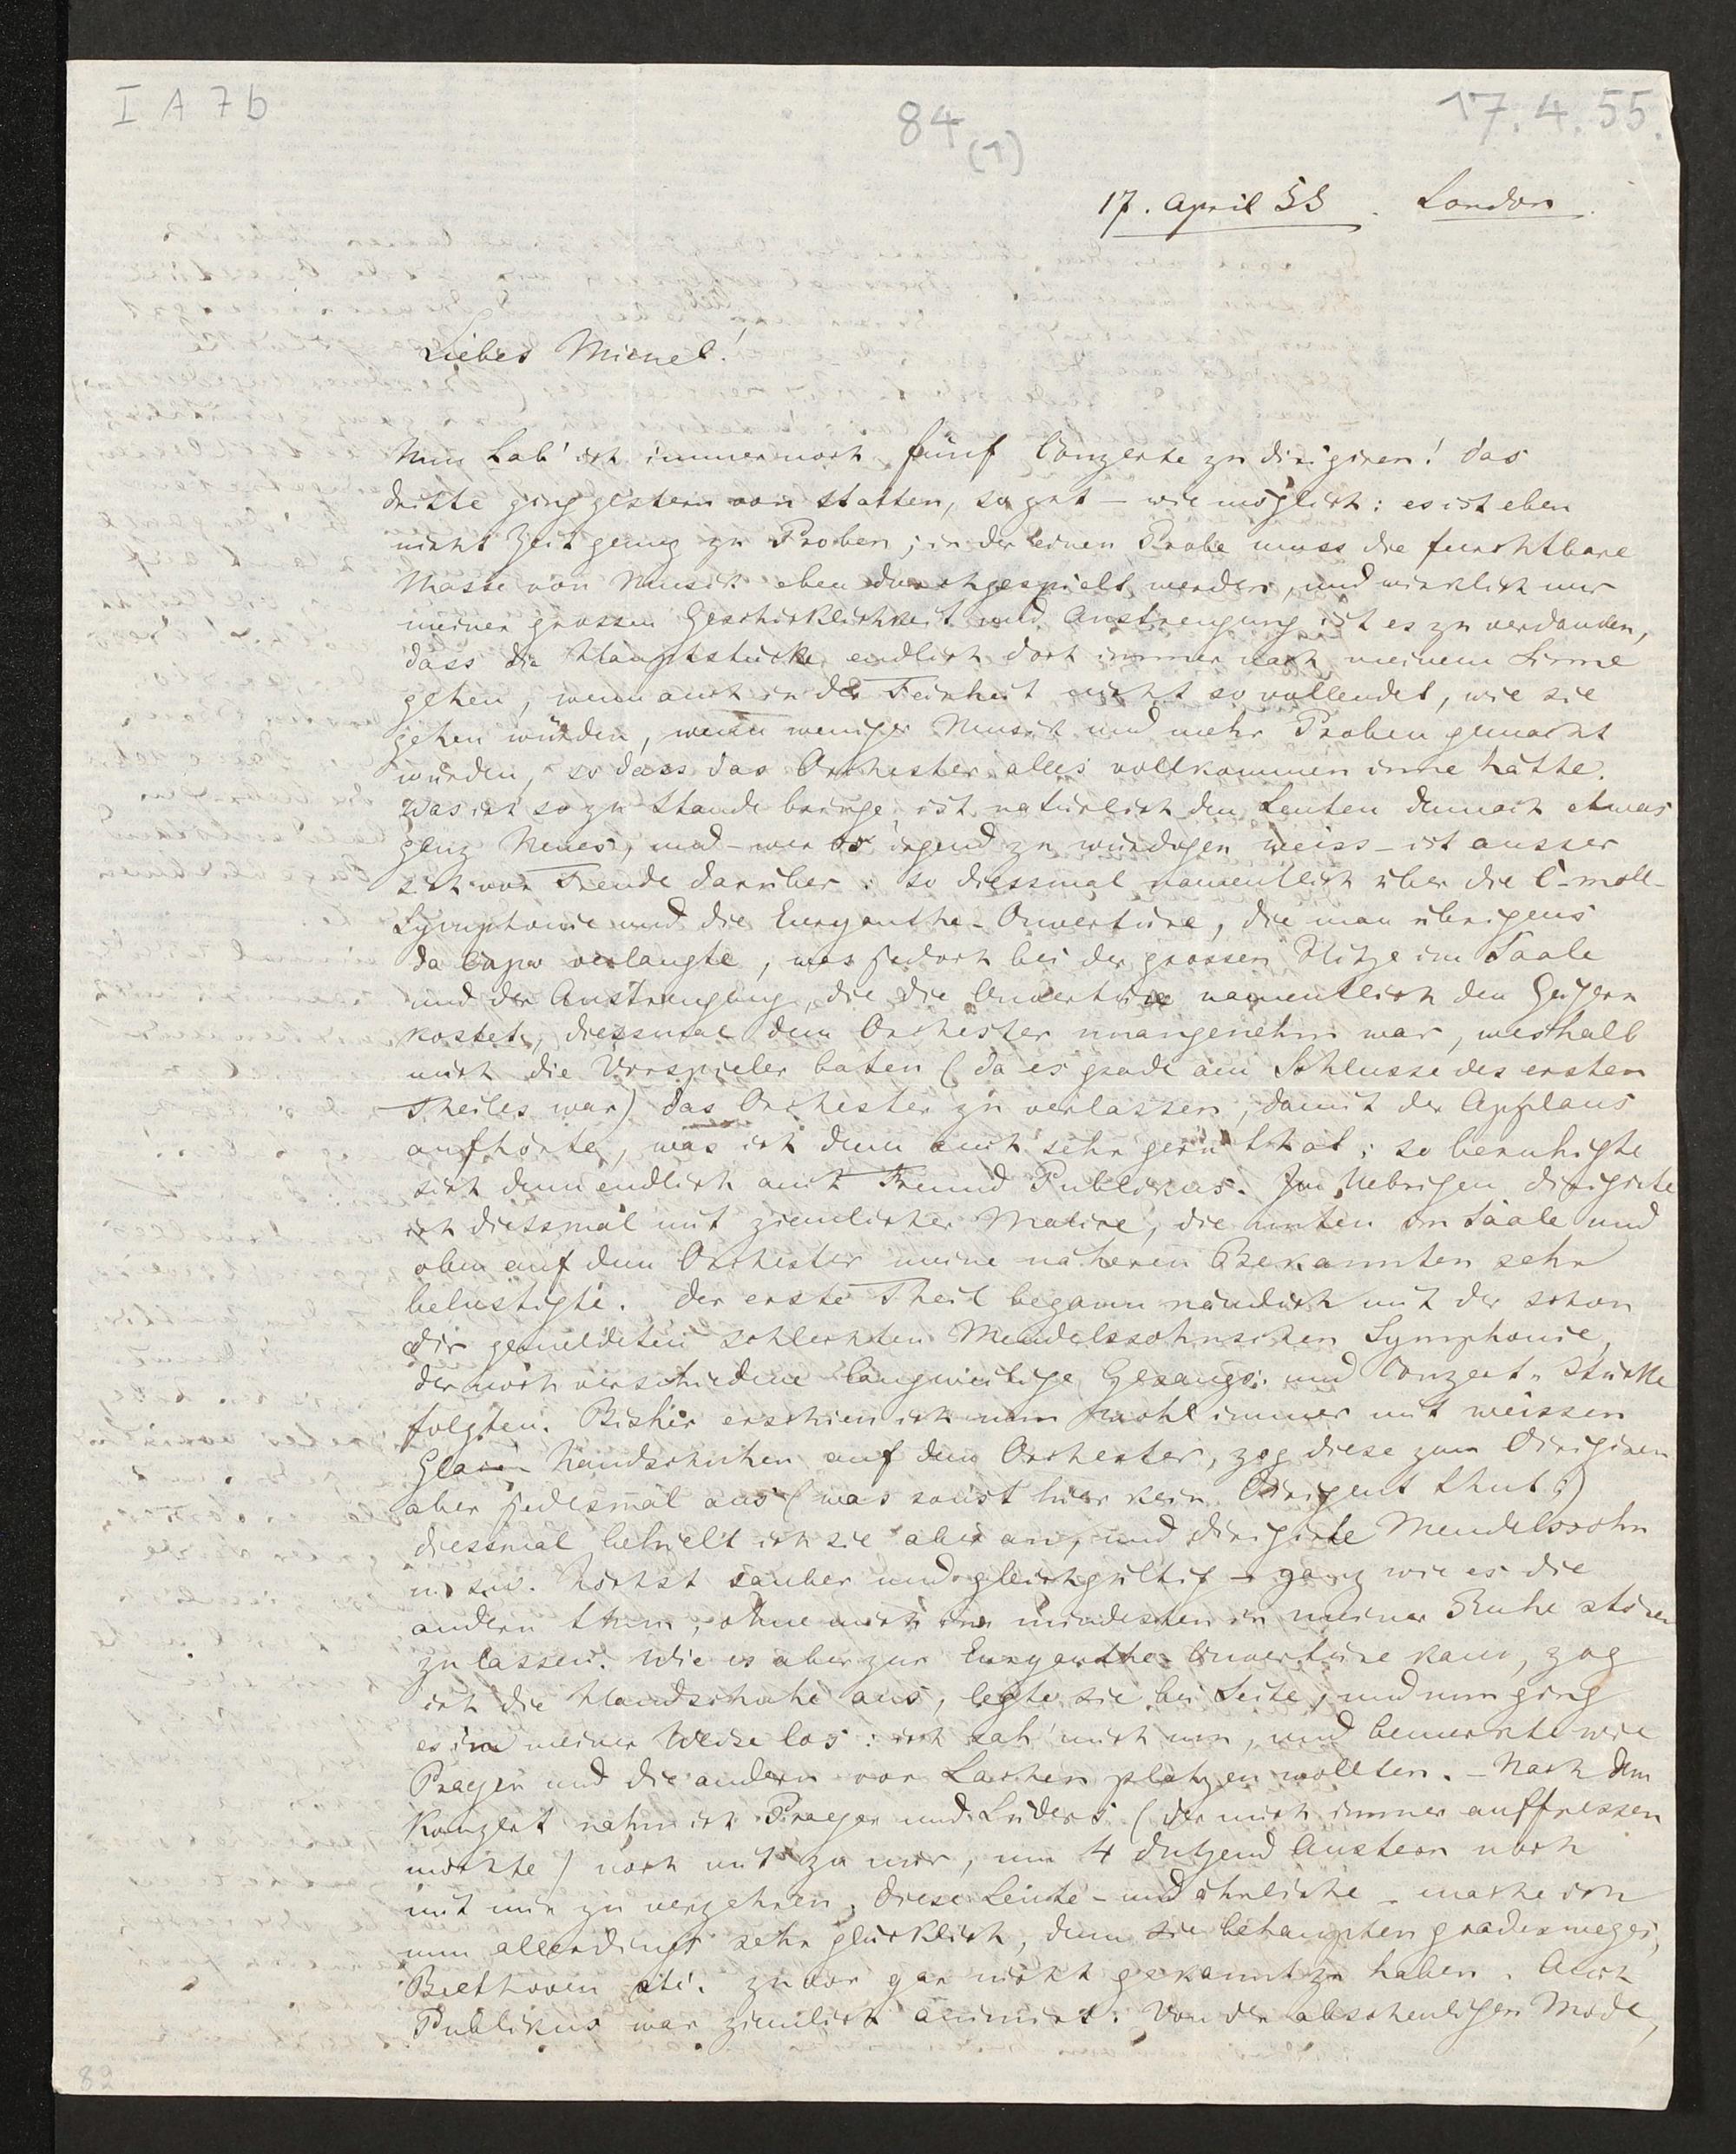 I A 7 b
84 (1)
17. 4. 55.
17. April 55. London.
Liebes Mienel!
Nun hab' ich immer noch fünf Conzerte zu dirigiren! das
dritte ging gestern von statten, so gut – wie möglich: es ist eben
nicht Zeit genug zu Proben; in der einen Probe muss die furchtbare
Masse von Musik eben durchgespielt werden, und wirklich nur
meiner grossen Geschicklichkeit und Anstrengung ist es zu verdanken,
dass die Hauptstücke endlich doch immer nach meinem Sinne
gehen, wenn auch in der Feinheit nicht so vollendet, wie sie
gehen würden, wenn weniger Musik und mehr Proben gemacht
würden, so dass das Orchester alles vollkommen inne hätte.
Was ich so zu Stande bringe, ist natürlich den Leuten dennoch etwas
ganz Neues, und – wer es irgend zu würdigen weiss – ist ausser
sich vor Freude darüber: so diessmal namentlich über die C-moll-
Symphonie und die Euryanthe-Ouvertüre, die man übrigens
da capo verlangte, was jedoch bei der grossen Hitze im Saale
und der Anstrengung, die die Ouvertüre namentlich den Geigern
kostet, diessmal dem Orchester unangenehm war, weshalb
mich die Vorspieler baten (da es grade am Schlusse des ersten
Theiles war) das Orchester zu verlassen, damit der Applaus
aufhörte, was ich denn auch sehr gern that; so beruhigte
sich denn endlich auch Freund Publikus. Im Uebrigen dirigirte
ich diessmal mit ziemlicher Malice, die unten im Saale und
oben auf dem Orchester meine näheren Bekannten sehr
belustigte. Der erste Theil begann nämlich mit der schon
dir gemeldeten schlechten Mendelssohnschen Symphonie,
der noch verschiedene langweilige Gesangs- und Conzert-Stücke
folgten. Bisher erschien ich nun wohl immer mit weissen
Glacé-Handschuhen auf dem Orchester, zog diese zum Dirigiren
aber jedesmal aus (was sonst hier kein Dirigent thut:)
diessmal behielt ich sie aber an, und dirigirte Mendelssohn
u. s.w. höchst sauber und gleichgültig – ganz wie es die
andern thun, ohne mich im mindesten in meiner Ruhe stören
zu lassen. Wie es aber zur Euryanthe-Ouvertüre kam, zog
ich die Handschuhe aus, legte sie bei Seite, und nun ging
es in meiner Weise los: ich sah mich um, und bemerkte wie
Praeger und die andern vor Lachen platzen wollten. – Nach dem
Konzert nahm ich Praeger und Lüders (der mich immer auffressen
möchte) noch mit zu mir, um 4 dutzend Austern noch
mit mir zu verzehren. Diese Leute – und ähnliche – mache ich
nun allerdings sehr glücklich, denn sie behaupten gradesweges,
Beethoven etc. zuvor gar nicht gekannt zu haben. Auch
Publikus war ziemlich animirt. Von der abscheuligen Mode,
82